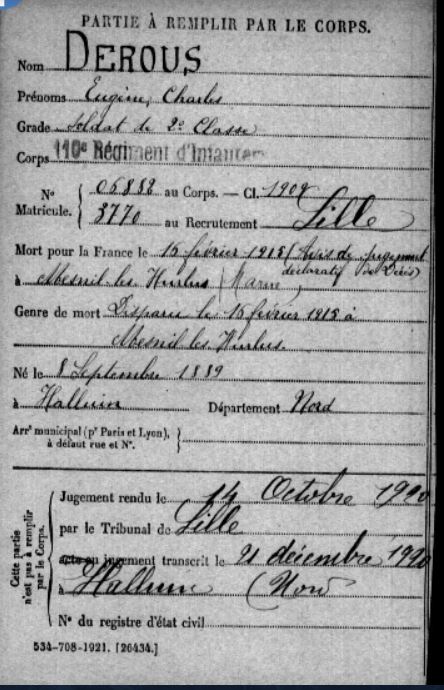 PARTIE À REMPLIR PAR LE CORPS.
Nom DEROUS
Prénoms Eugène, Charles
Grade Soldat de 2e Classe
Corps 110e Régiment d'Infanterie
No Matricule. { 05888 au Corps. — Cl. 1909
3770 au Recrutement Lille
Mort pour la France le 15 février 1915 (Avis de jugement
déclaratif de Décès)
à Mesnil les Hurlus (Marne)
Genre de mort Disparu le 15 février 1915 à
Mesnil les Hurlus.
Né le 8 Septembre 1889
à Halluin Département Nord
Arrt municipal (pr Paris et Lyon), à défaut rue et No. }
Cette partie n'est pas à remplir par le Corps.
Jugement rendu le 14 Octobre 1920
par le Tribunal de Lille
acte ou jugement transcrit le 21 décembre 1920
à Halluin (Nord
No du registre d'état civil
534-708-1921. [26434.]